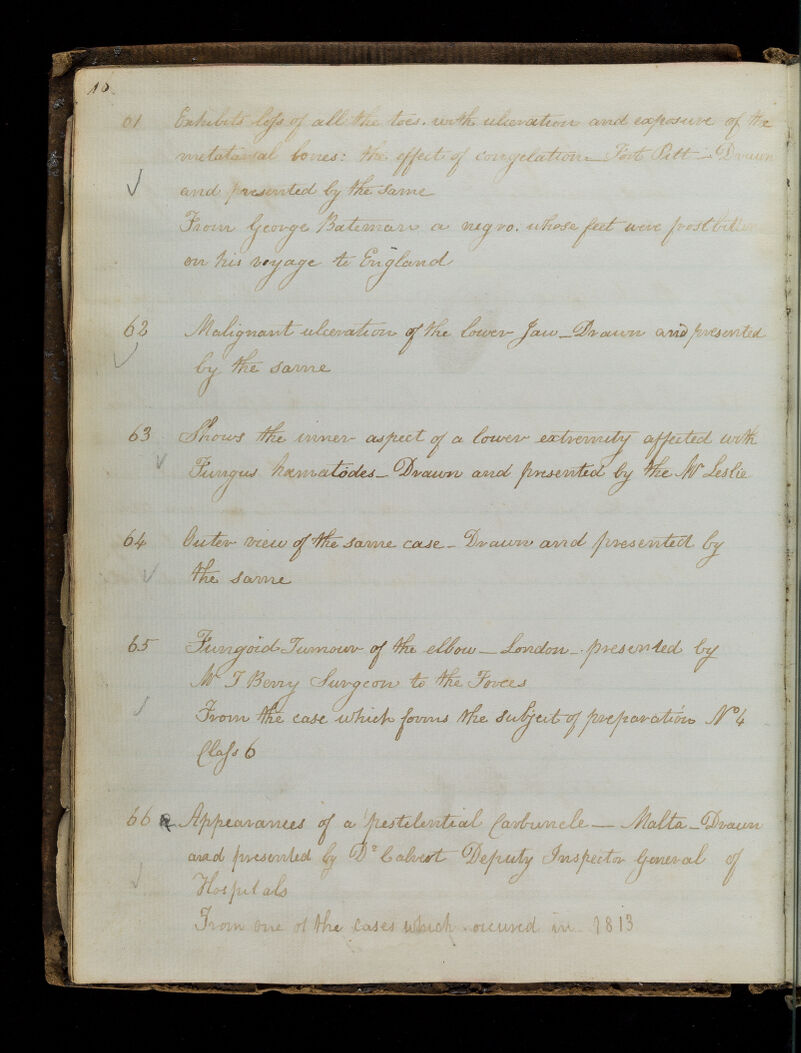 10
61 Exhibits loſs of all the toes. with ulceration and exposure of the
metatarsal bones: the effect of congelation — Fort Pitt — Drawn
and presented by the same
From George Bateman a negro. whose feet were frostbitten
on his voyage to England
62 Malignant ulceration of the lower Jaw — Drawn and presented
by the same
63 Shows the inner aspect of a lower extremity affected with
Fungus hæmatodes — Drawn and presented by the Mr Leslie
64 Outer view of the same case — Drawn and presented by
the same
65 Fungoid Tumour of the elbow — London — presented by
Mr T Berry Surgeon to the Forces
From the case which forms the subject of preparation No 4
Claſs 6
66 a Appearances of a pestilential Carbuncle — Malta — Drawn
and presented by Dr Calvert Deputy Inspector General of
Hospitals
From one of the cases which occured in 1813